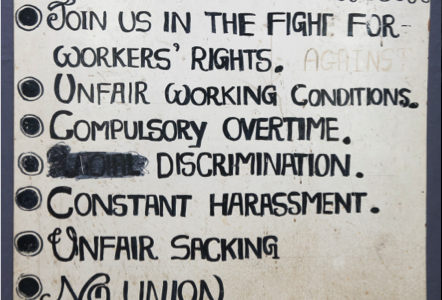 JOIN US IN THE FIGHT FOR-
WORKERS' RIGHTS. AGAINST
UNFAIR WORKING CONDITIONS.
COMPULSORY OVERTIME.
DISCRIMINATION.
CONSTANT HARASSMENT.
UNFAIR SACKING
NO UNION